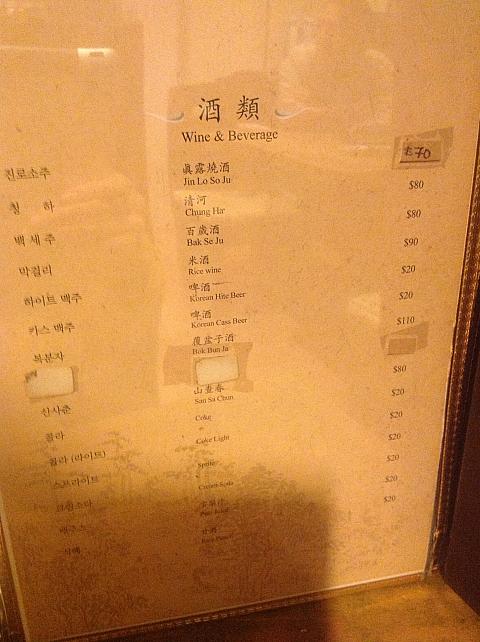 酒類
Wine & Beverage
진로소주 眞露燒酒 $70
Jin Lo So Ju
청 하 清河 $80
Chung Ha
백 세 주 百歲酒 $80
Bak Se Ju
막걸리 米酒 $90
Rice wine
하이트 맥주 啤酒 $20
Korean Hite Beer
카스 맥주 啤酒 $20
Korean Cass Beer
복분자 覆盆子酒 $110
Bok Bun Ja
산사춘 山查春 $80
San Sa Chun
콜라 Coke $20
콜라 (라이트) Coke Light $20
스프라이트 Sprite $20
크림소다 Cream Soda $20
배주스 $20
식혜 $20